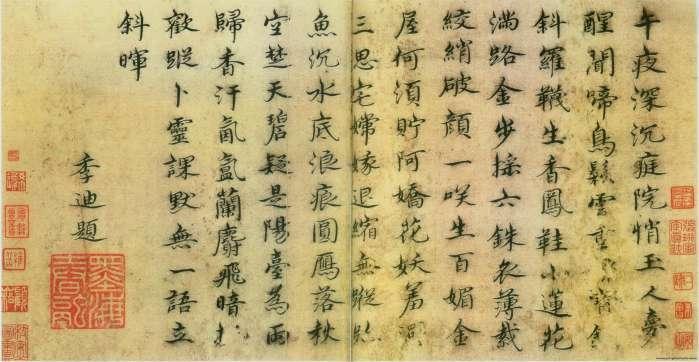 午夜深沉庭院悄玉人夢
醒聞啼鳥鬆雲
斜羅襪生香鳳鞋小蓮花
滿路金步採六銖衣薄裁
絞綃破顏一咲生百媚金
屋何須貯阿嬌花妖羞
三思宅嫦娥退縮無蹤
魚沉水底浪痕圓鴈落秋
空楚天碧疑是陽臺為雨
歸香汗氤氳蘭麝飛暗
歡蹤卜靈課默無一語立
斜暉
季迪題